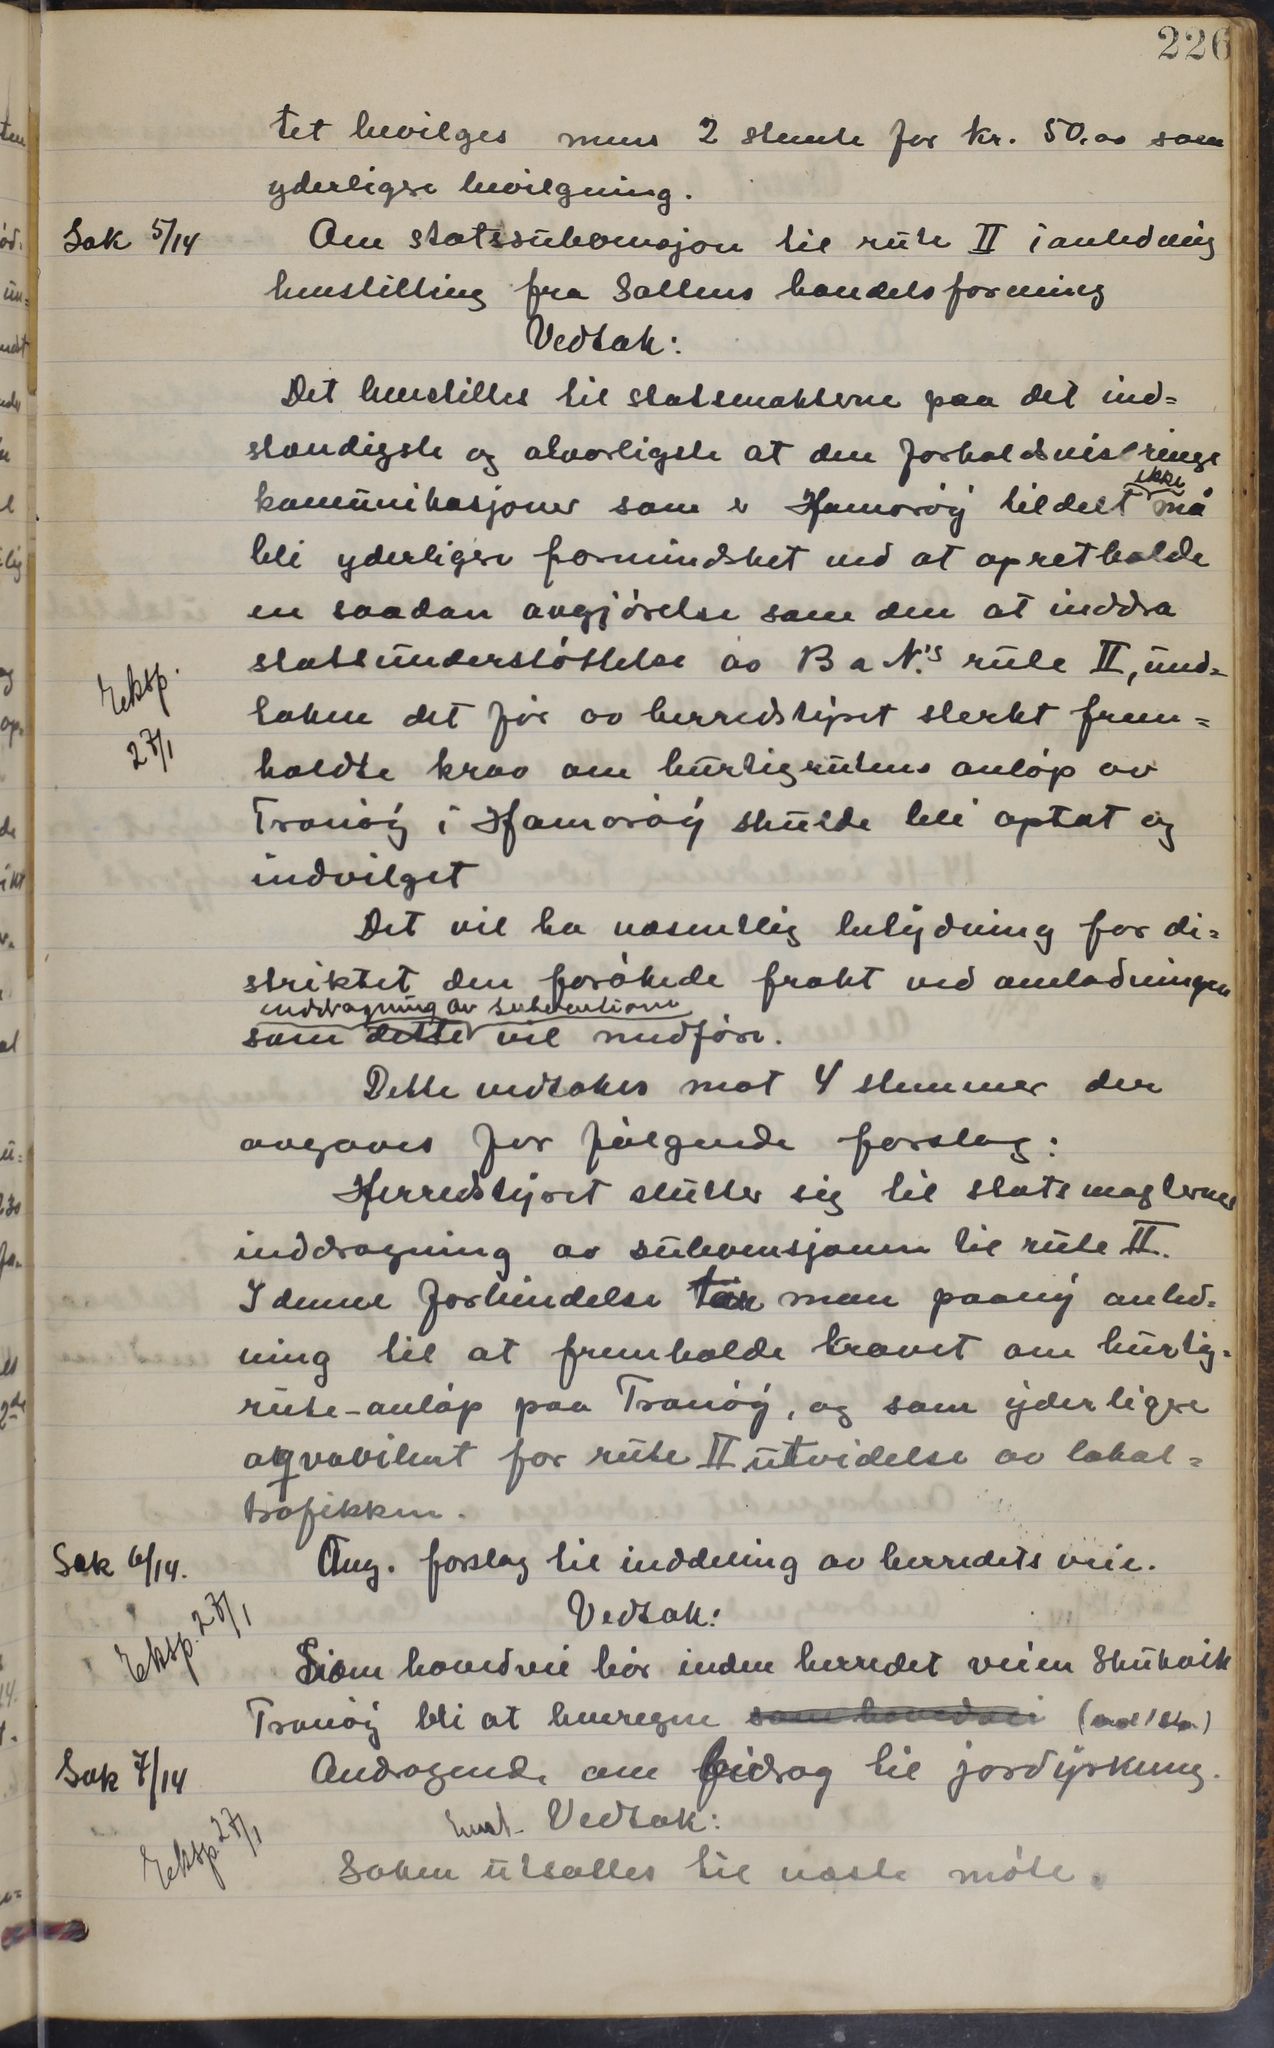 226
tet bevilges mens 2 stemte for kr. 50.00 som
yderligere bevilgning.
Sak 5/14 Om statssubvensjon til rute II i anledning
henstilling fra Saltens handelsforening
Vedtak:
Det henstilles til statsmakterne paa det ind=
stændigste og alvorligste at den forholdsvis ringe
komunikasjoner som er Hamarøy tildelt ikke må
bli yderligere formindsket ved at opretholde
en saadan avgjørelse som den at inddra
statsunderstøttelse av B a N.'s rute II, und=
Eksp. 27/1
taken det før av herredstyret sterkt frem=
holdte krav om hurtigrutens anløp av
Tranøy i Hamarøy skulde bli optat og
indvilget
Det vil ha væsentlig betydning for di=
striktet den forøkede frakt ved omladningen
inddragning av subventionen
som dette vil medføre.
Dette vedtakes mot 4 stemmer der
avgaves for følgende forslag:
Herredstyret slutter sig til statsmagternes
inddragning av subvensjonen til rute II.
I denne forbindelse tar man paany anled=
ning til at fremholde kravet om hurtig=
rute-anløp paa Tranøy, og som yderligere
æqvavilent for rute II utvidelse av lokal=
trafikken.
Sak 6/14. Ang. forslag til inddeling av herredets veie.
Eksp. 27/1
Vedtak:
Som hovedvei bør inden herredet veien Skutvik
Tranøy bli at henregne som hovedvei
Sak 7/14 Andragende om bidrag til jorddyrkning.
Eksp. 27/1
Enst. Vedtak:
Saken utsættes til næste møte.